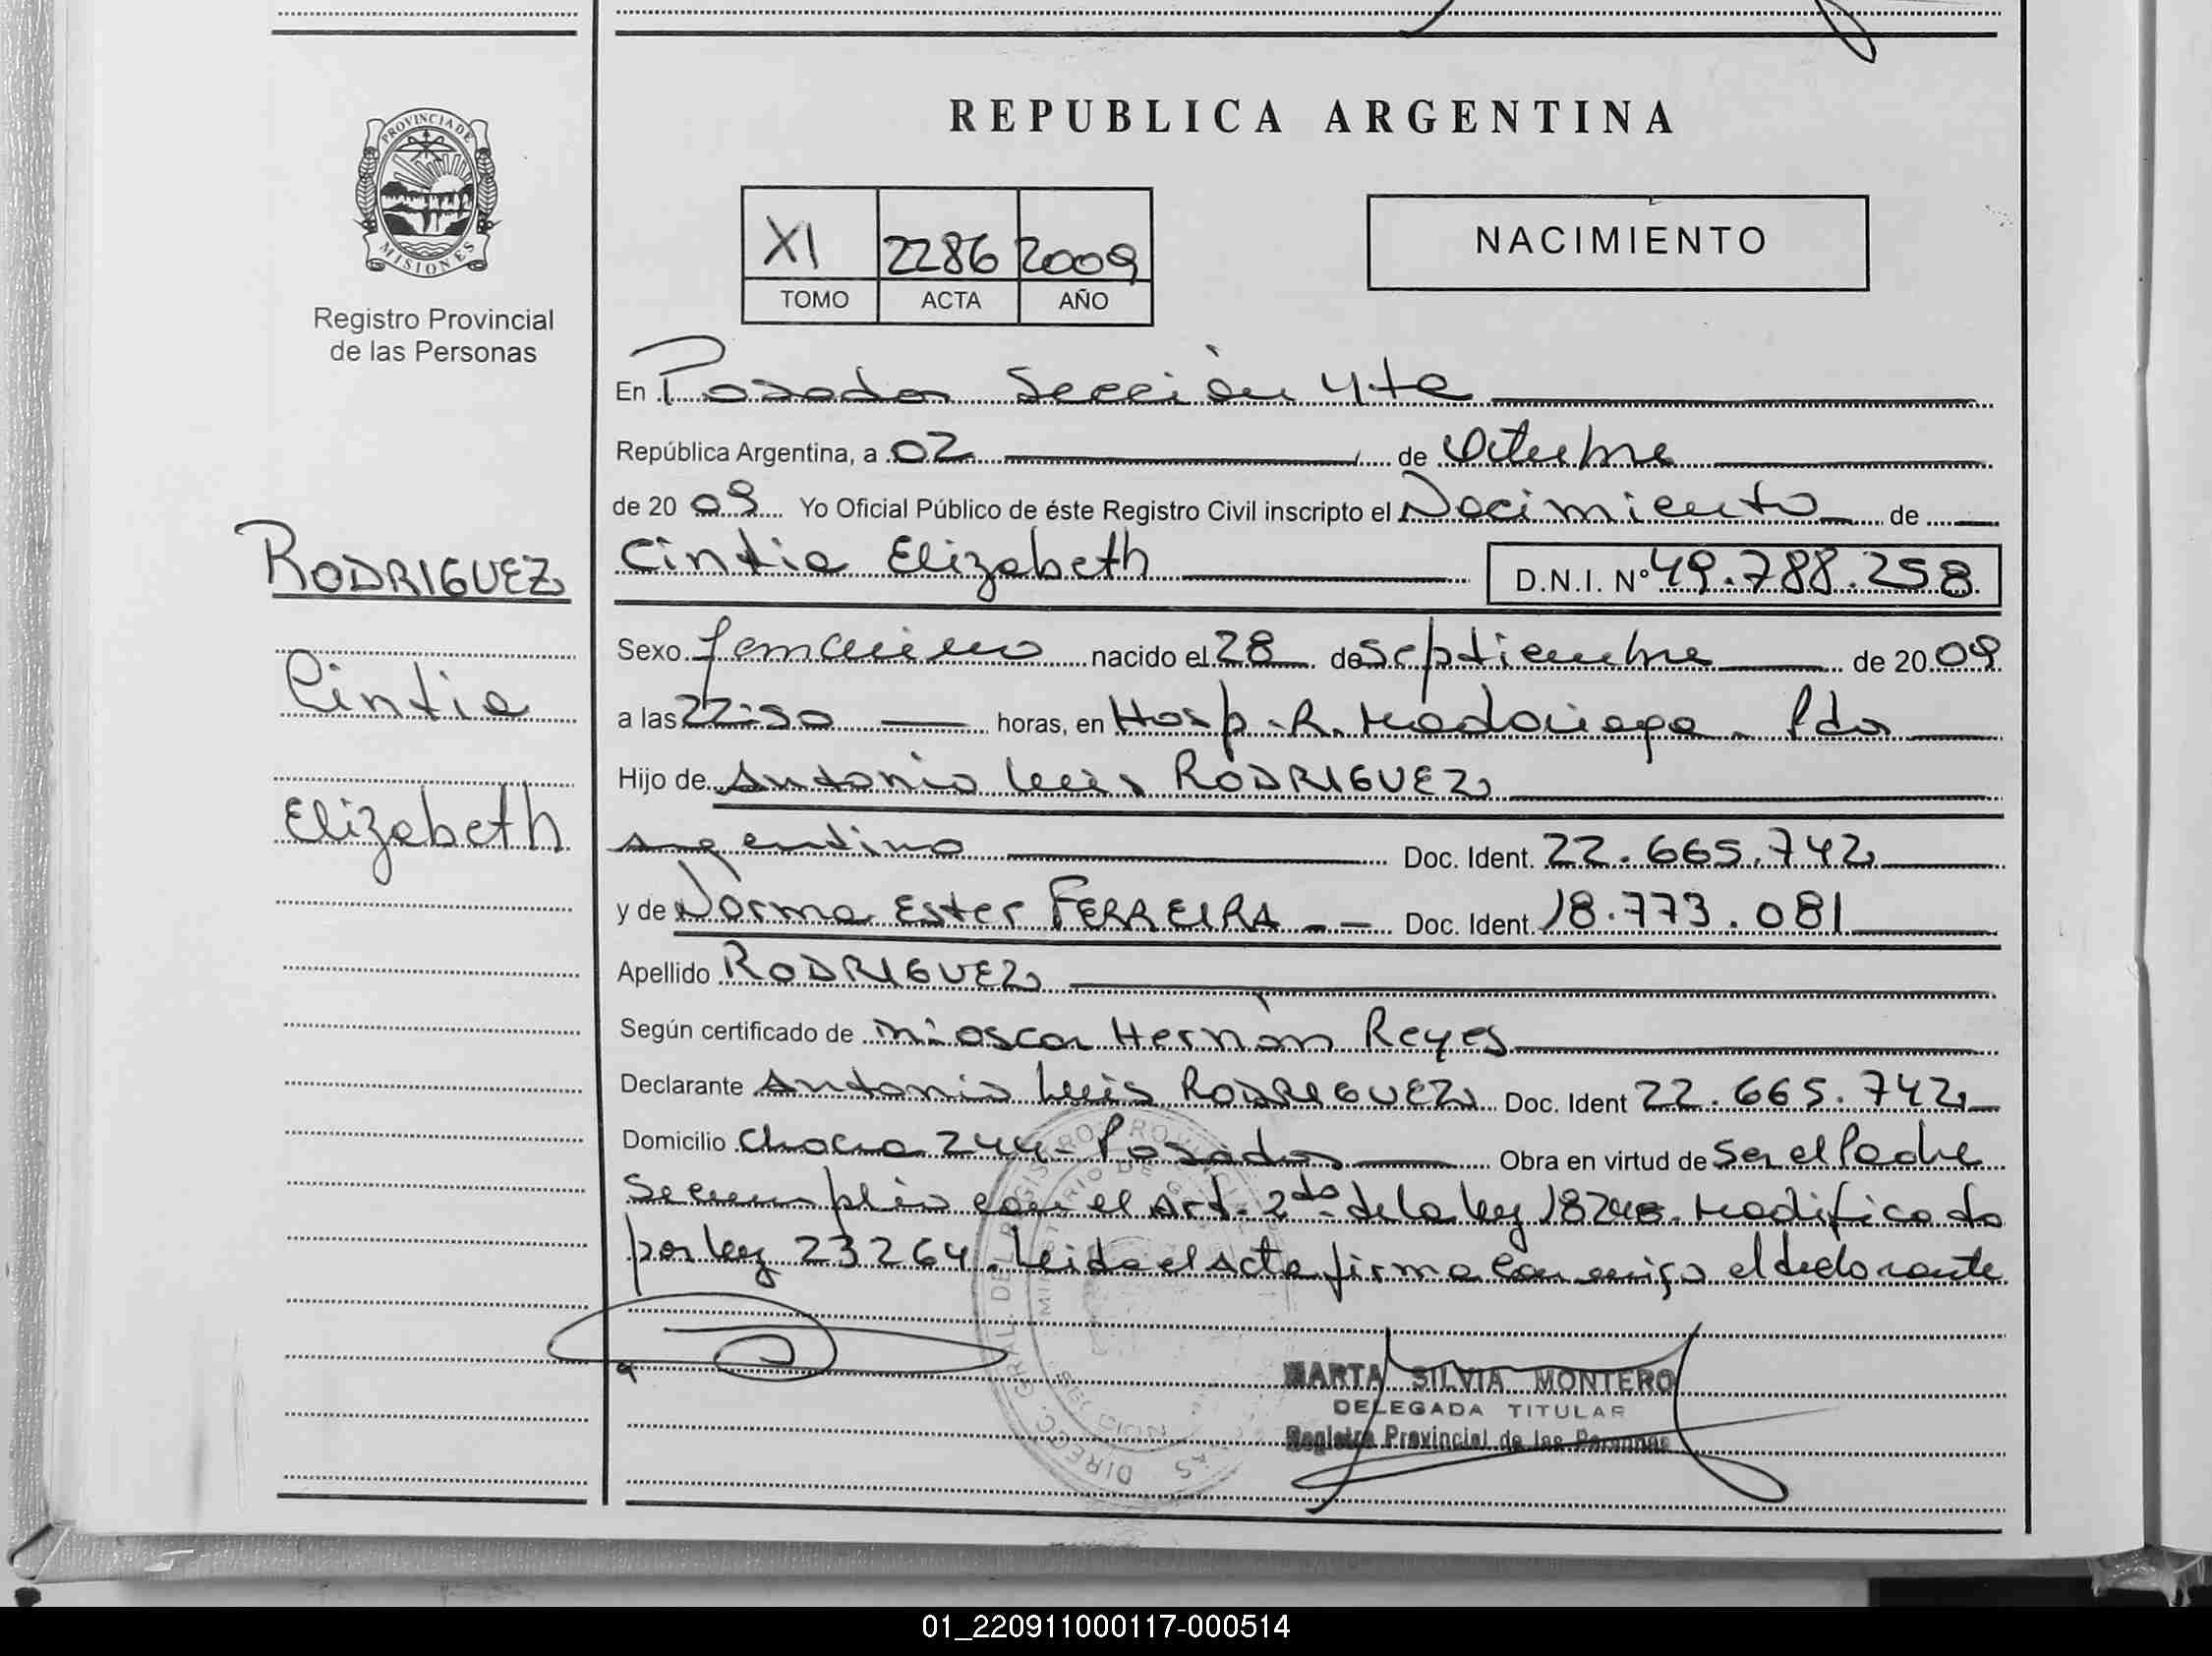 PROVINCIA DE
MISIONES
Registro Provincial
de las Personas
RODRIGUEZ
Cintia
Elizabeth
REPUBLICA ARGENTINA
XI 2286 2009
TOMO ACTA AÑO
NACIMIENTO
En Posadas Sección 4ta
República Argentina, a 02 de Octubre
de 20 09 Yo Oficial Público de éste Registro Civil inscripto el Nacimiento de
Cintia Elizabeth D.N.I. Nº 49.788.258
Sexo femenino nacido el 28 de Septiembre de 20 09
a las horas, en Hosp. R. Madariaga. Pdas
Hijo de Antonio Luis RODRIGUEZ
argentino Doc. Ident. 22.665.742
y de Norma Ester FERREIRA Doc. Ident. 18.773.081
Apellido RODRIGUEZ
Según certificado de Oscar Hernán Reyes
Declarante Antonio Luis RODRIGUEZ Doc. Ident 22.665.742
Domicilio Chacra 244 - Posadas Obra en virtud de Ser el Padre
Se cumplio con el Art. 2do de la ley 18248. Modificado
por ley 23264. Leida el acta firma conmigo el declarante
MARTA SILVIA MONTERO
DELEGADA TITULAR
Registro Provincial de las Personas
DIRECC. GRAL. DEL REGISTRO PROVINCIAL
MINISTERIO DE
01_220911000117-000514